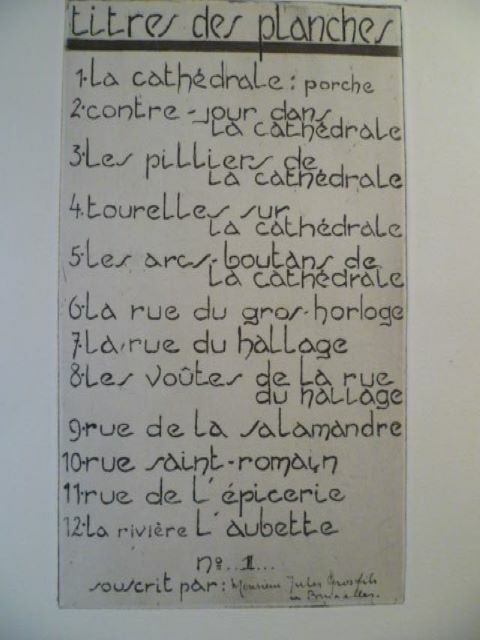 titres des planches
1. La cathédrale: porche
2. contre-jour dans
La cathédrale
3. Les pilliers de
La cathédrale
4. tourelles sur
La cathédrale
5. Les arcs-boutans de
La cathédrale
6. La rue du gros-horloge
7. La rue du hallage
8. Les voûtes de La rue
du hallage
9. rue de La salamandre
10. rue saint-romain
11. rue de L'épicerie
12. La rivière L'aubette
Nº..1...
souscrit par: Monsieur Jules
Bruxelles.